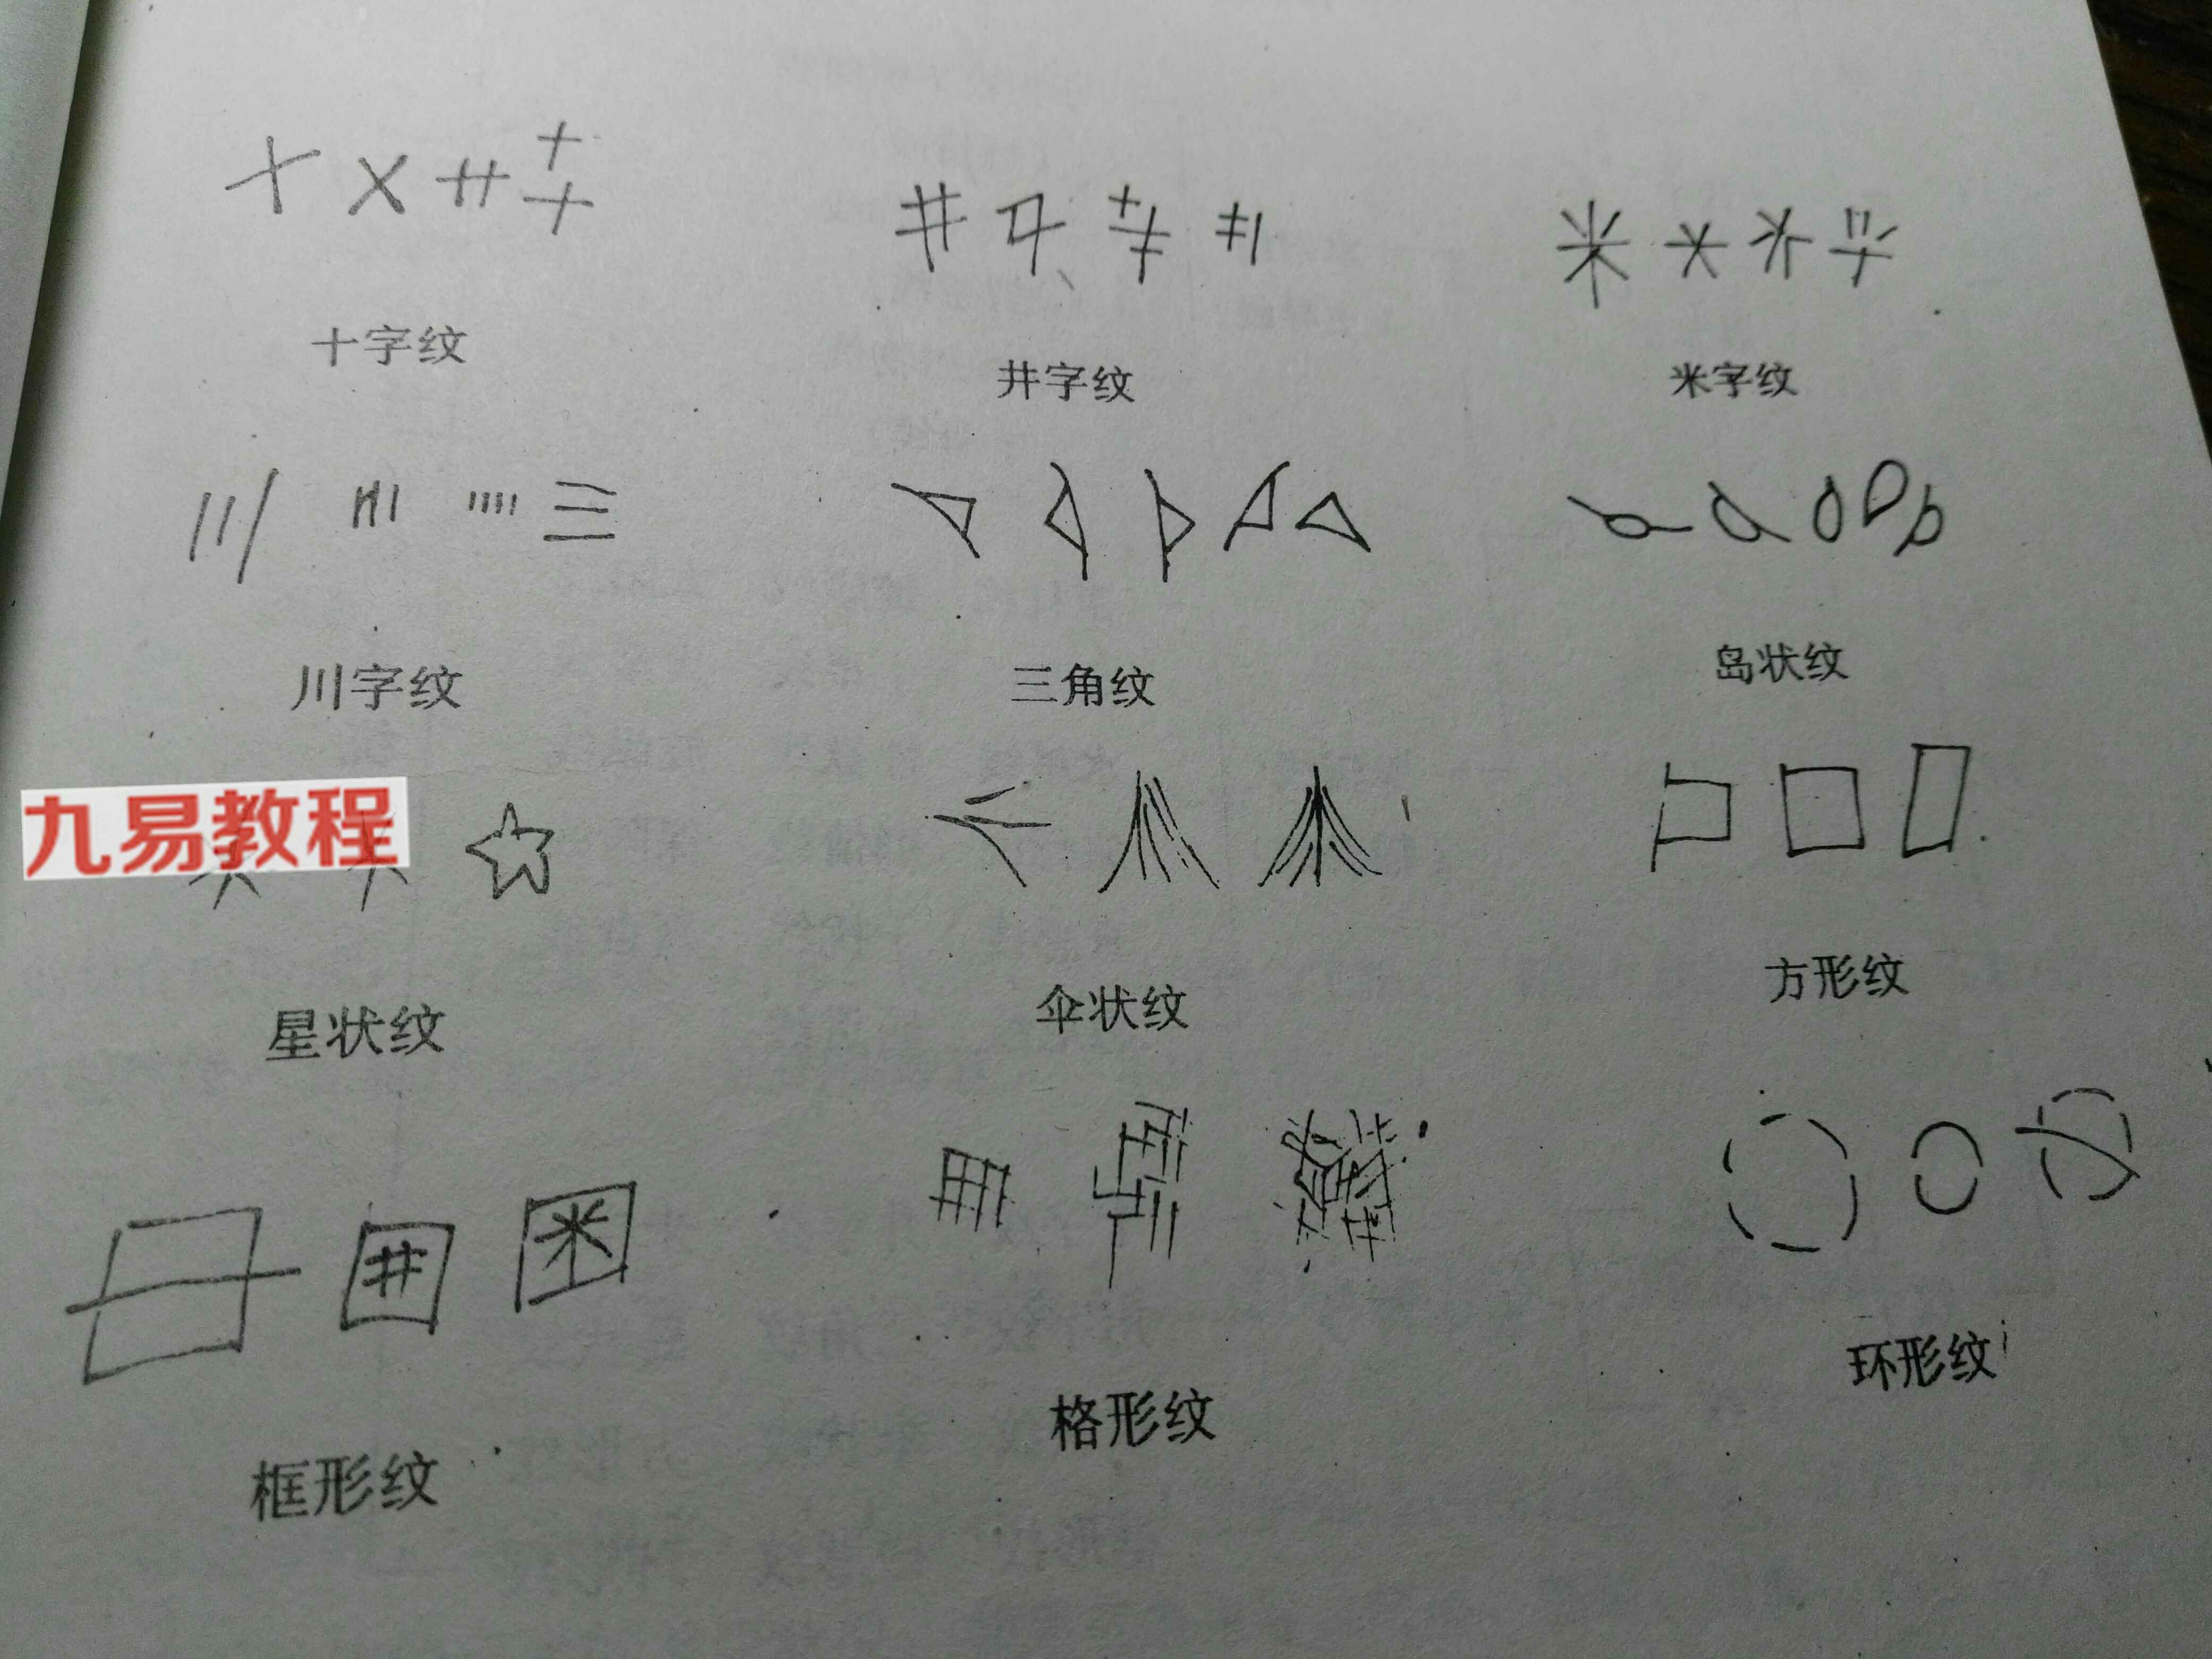 十字纹 井字纹 米字纹
川字纹 三角纹 岛状纹
九易教程
星状纹 伞状纹 方形纹
框形纹 格形纹 环形纹